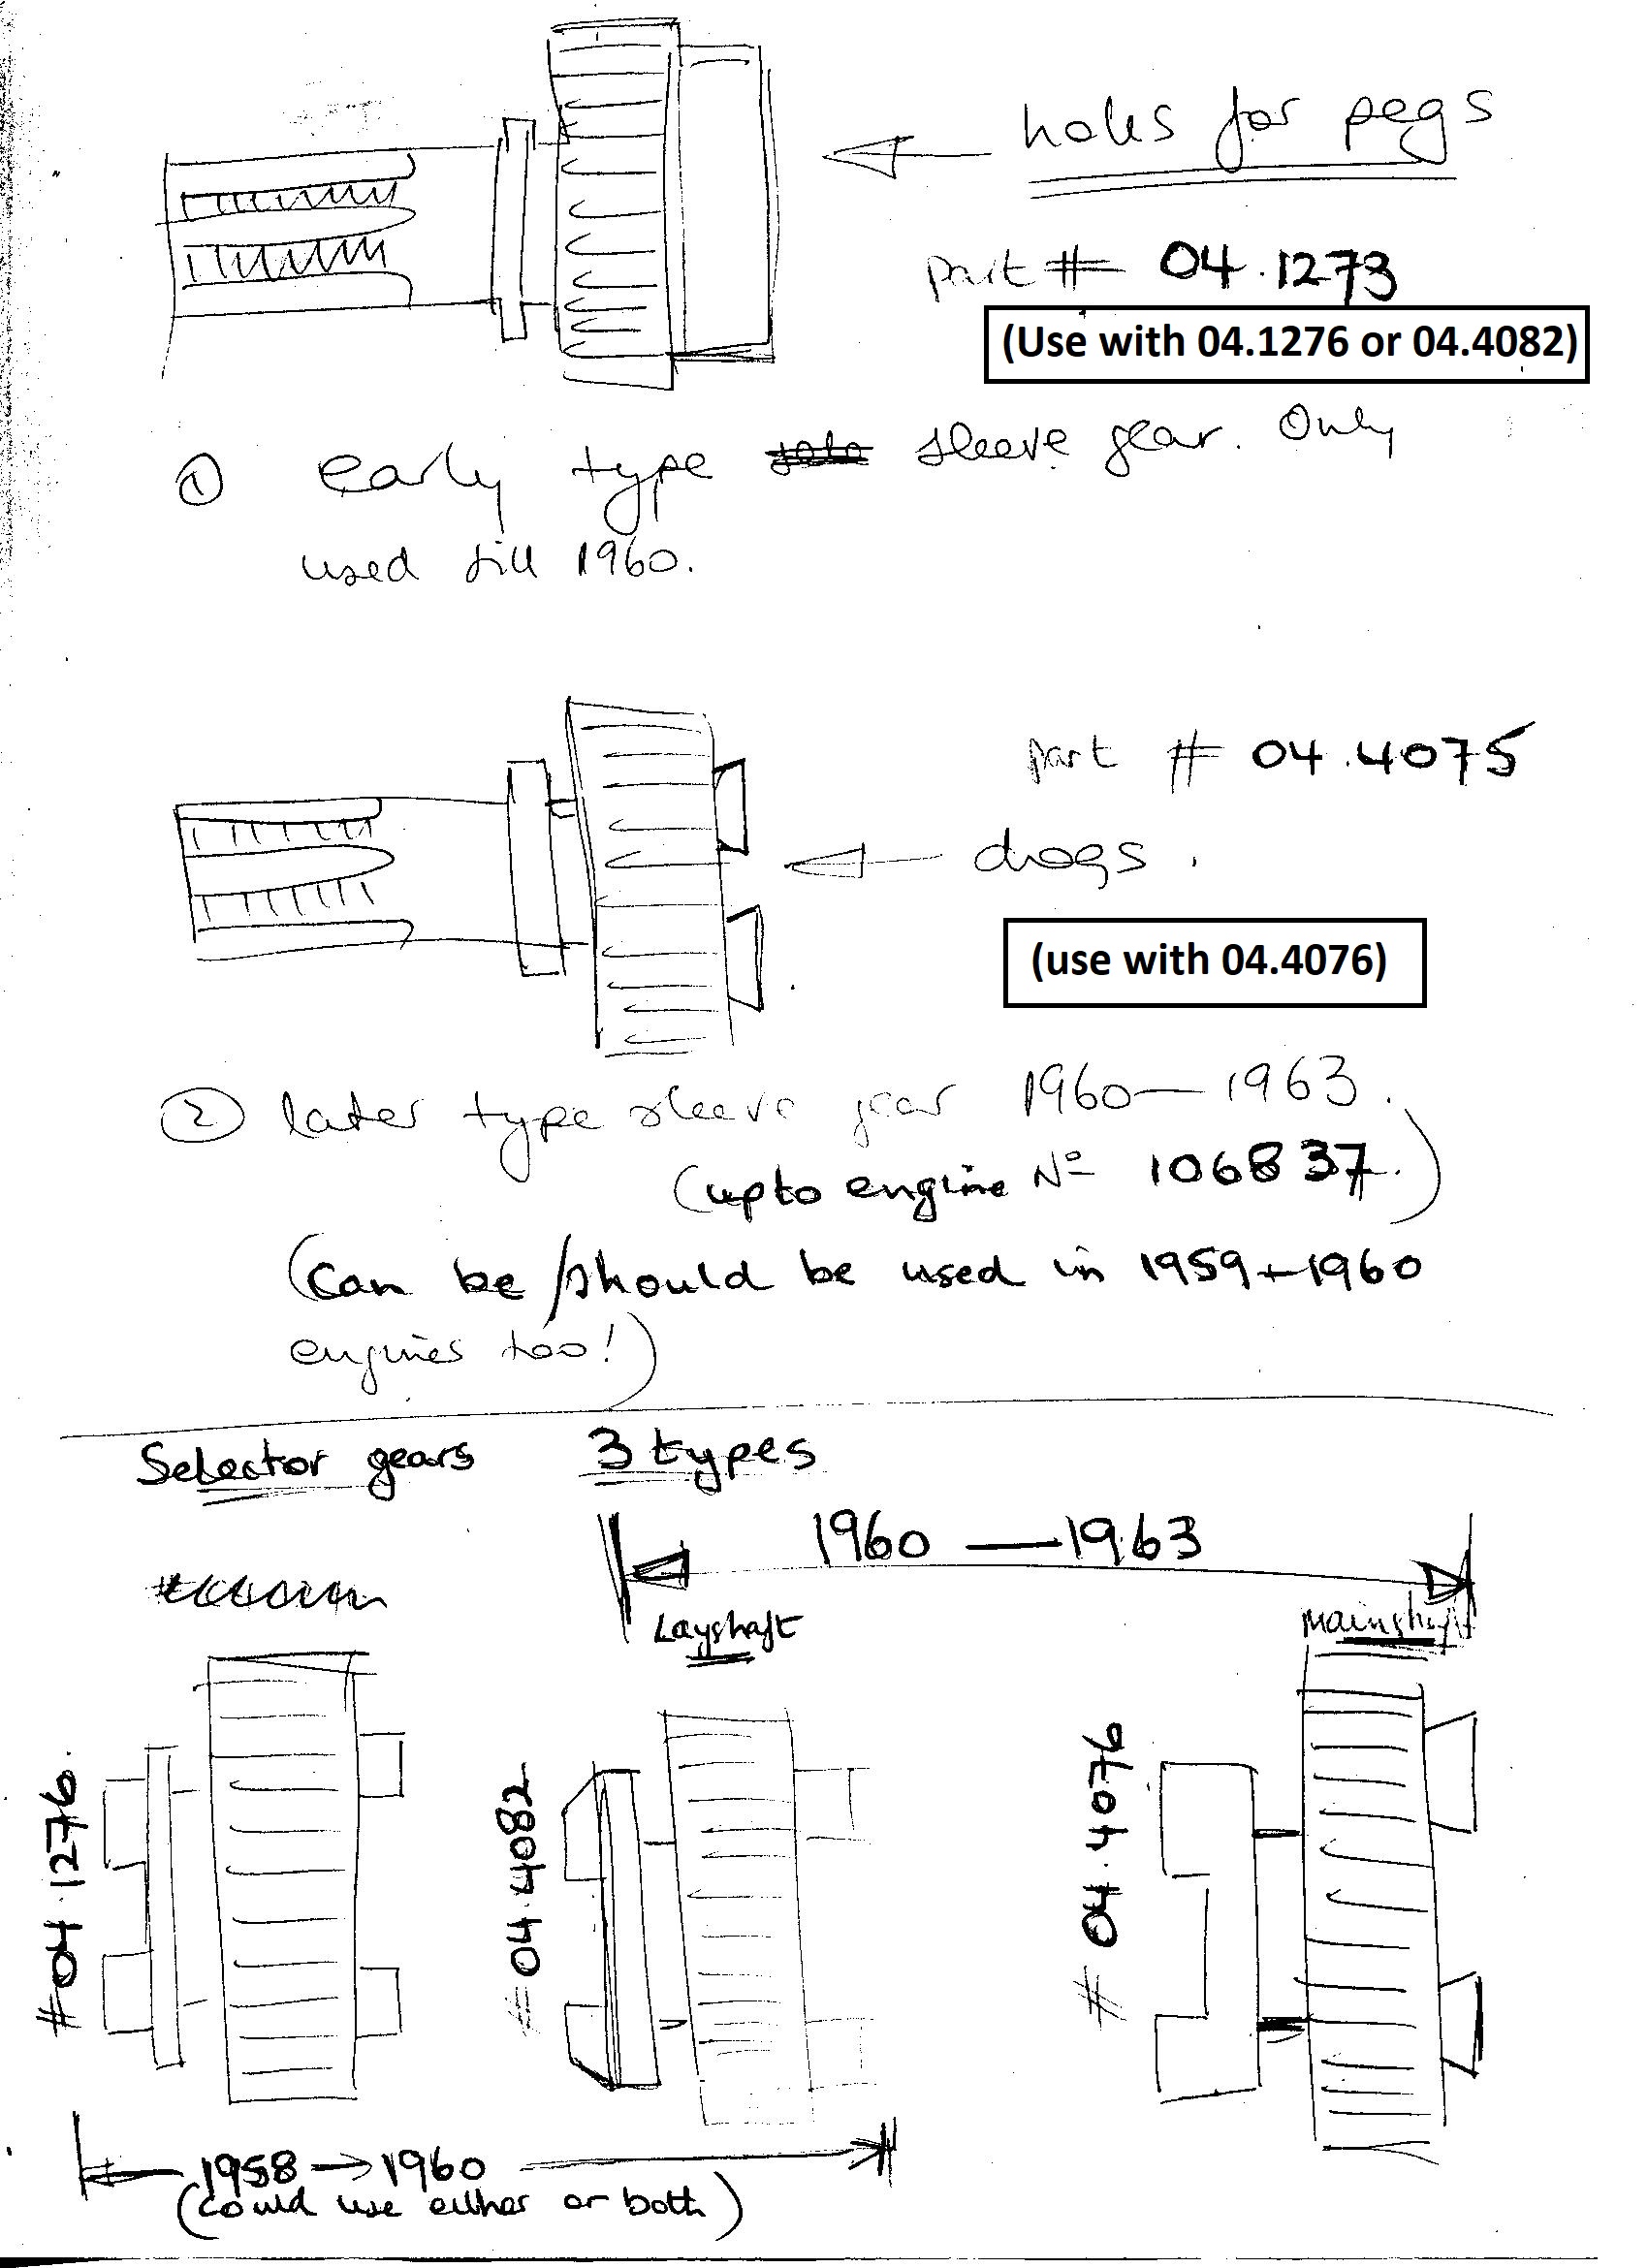 holes for pegs
part # 04.1273
(Use with 04.1276 or 04.4082)
① early type sleeve gear. Only
used till 1960.
part # 04.4075
dogs.
(use with 04.4076)
② later type sleeve gear 1960—1963.
(upto engine Nº 106837.)
(Can be/should be used in 1959+1960
engines too!)
Selector gears 3 types
1960 — 1963
Layshaft
Mainshaft
#04.1276.
#04.4082
# 04.4076
1958 → 1960
(could use either or both)